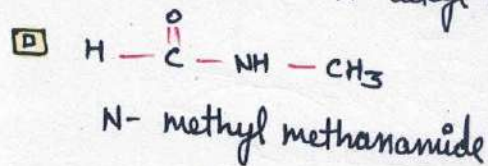 D
O
H — C — NH — CH3
N- methyl methanamide